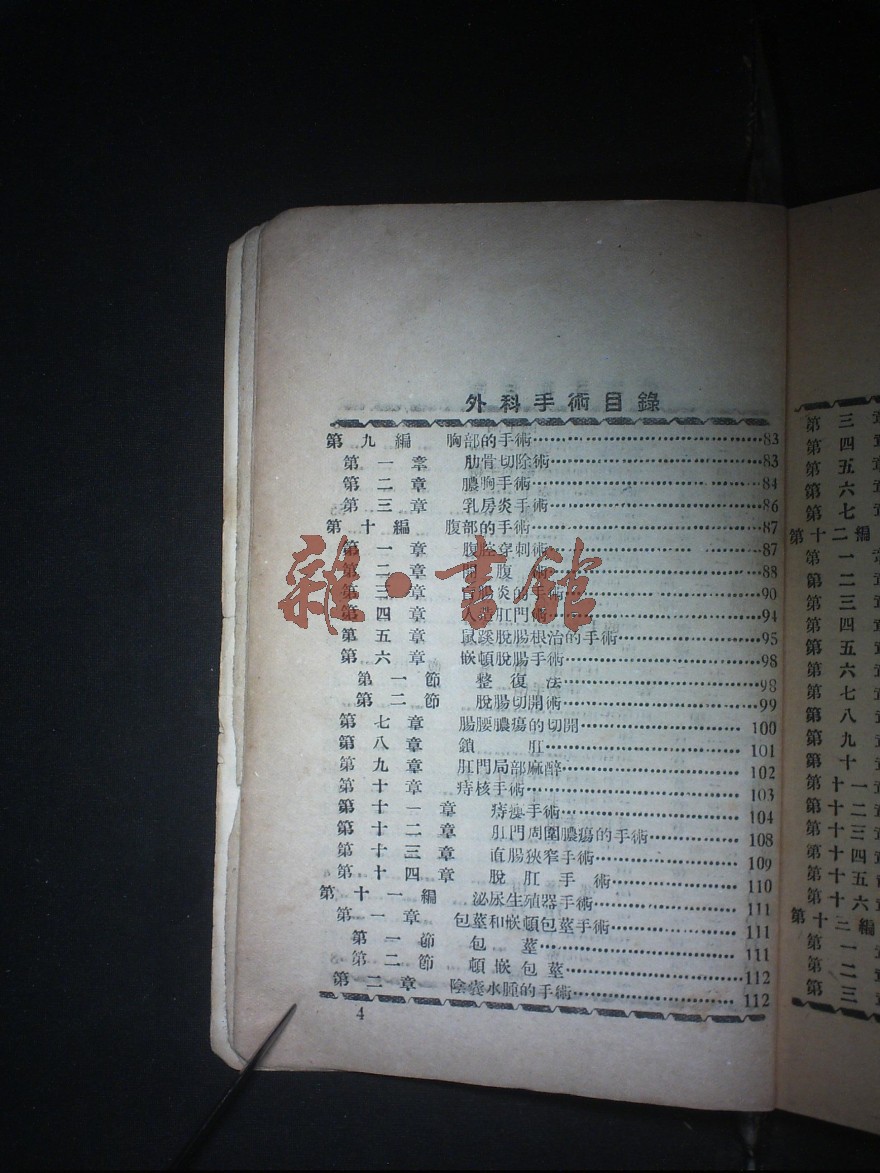 外科手術目錄
第九編 胸部的手術……83
第一章 肋骨切除術……83
第二章 膿胸手術……84
第三章 乳房炎手術……86
第十編 腹部的手術……87
第一章 腹腔穿刺術……87
第二章 開腹術……88
第三章 盲腸炎的手術……90
第四章 人造肛門術……94
第五章 鼠蹊脫腸根治的手術……95
第六章 嵌頓脫腸手術……98
第一節 整復法……98
第二節 脫腸切開術……99
第七章 腸腰膿瘍的切開……100
第八章 鎖肛……101
第九章 肛門局部麻醉……102
第十章 痔核手術……103
第十一章 痔瘻手術……104
第十二章 肛門周圍膿瘍的手術……108
第十三章 直腸狹窄手術……109
第十四章 脫肛手術……110
第十一編 泌尿生殖器手術……111
第一章 包莖和嵌頓包莖手術……111
第一節 包莖……111
第二節 頓嵌包莖……112
第二章 陰囊水腫的手術……112
4
雜·書館
第三
第四
第五
第六
第七
第十二編
第一
第二
第三
第四
第五
第六
第七
第八
第九
第十
第十一
第十二
第十三
第十四
第十五
第十六
第十三編
第一
第二
第三